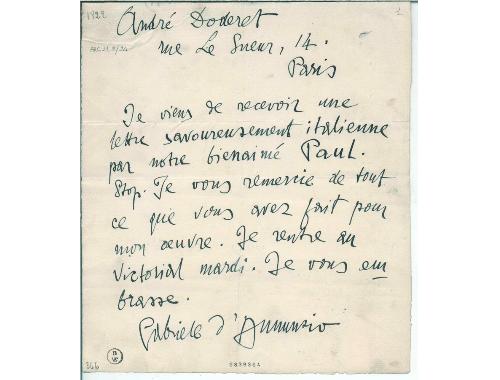 1922
André Doderet
rue Le Sueur, 14.
Paris
Je viens de recevoir une
lettre savoureusement italienne
par notre bienaimé Paul.
Stop. Je vous remercie de tout
ce que vous avez fait pour
mon œuvre. Je rentre au
Victorial mardi. Je vous em
brasse.
Gabriele d'Annunzio
366